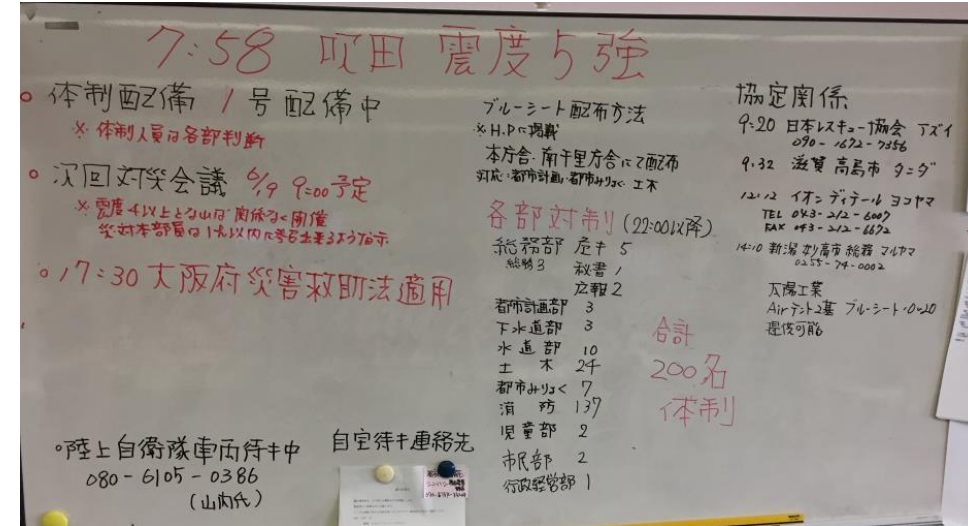 7:58 吹田 震度5強
○ 体制配備 1号配備中
※ 体制人員は各部判断
○ 次回対災会議 6/19 9:00予定
※ 震度4以上となれば関係なく開催
災対本部員は1h以内に参召出来るよう
○ 17:30 大阪府災害救助法適用
○陸上自衛隊車両待キ中
080-6105-0386
(山内氏)
自宅待キ連絡先
ブルーシート配布方法
※H.Pに掲載
本庁舎・南千里庁舎にて配布
対応:都市計画・都市みりょく・土木
各部対制(22:00以降)
総務部 危キ 5
総務3 秘書 1
広報 2
都市計画部 3
下水道部 3
水道部 10
土木 24
都市みりょく 7
消防 137
児童部 2
市民部 2
行政経営部 1
合計
200名
体制
協定関係
9:20 日本レスキュー協会 アズイ
090-1672-7356
9:32 滋賀 高島市 タニダ
12:12 イオンディテール ヨコヤマ
TEL 043-212-6007
FAX 043-212-6672
14:10 新潟 妙高市 総務 マルヤマ
0255-74-0002
太陽工業
Airテント2基 ブルーシート10〜20
提供可能